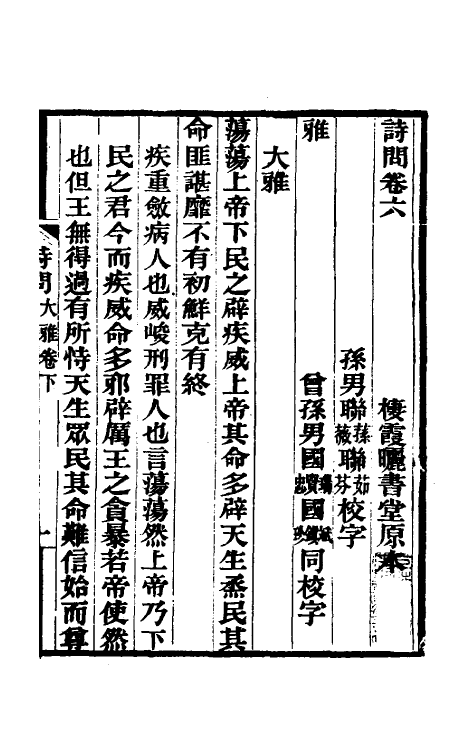 詩問卷六
棲霞曬書堂原本
孫男聯薇聯芬校字
雅
曾孫男國國同校字
大雅
蕩蕩上帝下民之辟疾威上帝其命多辟天生烝民其
命匪諶靡不有初鮮克有終
疾重斂病人也威峻刑罪人也言蕩蕩然上帝乃下
民之君今而疾威命多邪辟厲王之貪暴若帝使然
也但王無得過有所恃天生眾民其命難信始而尊
詩問 大雅卷下 一